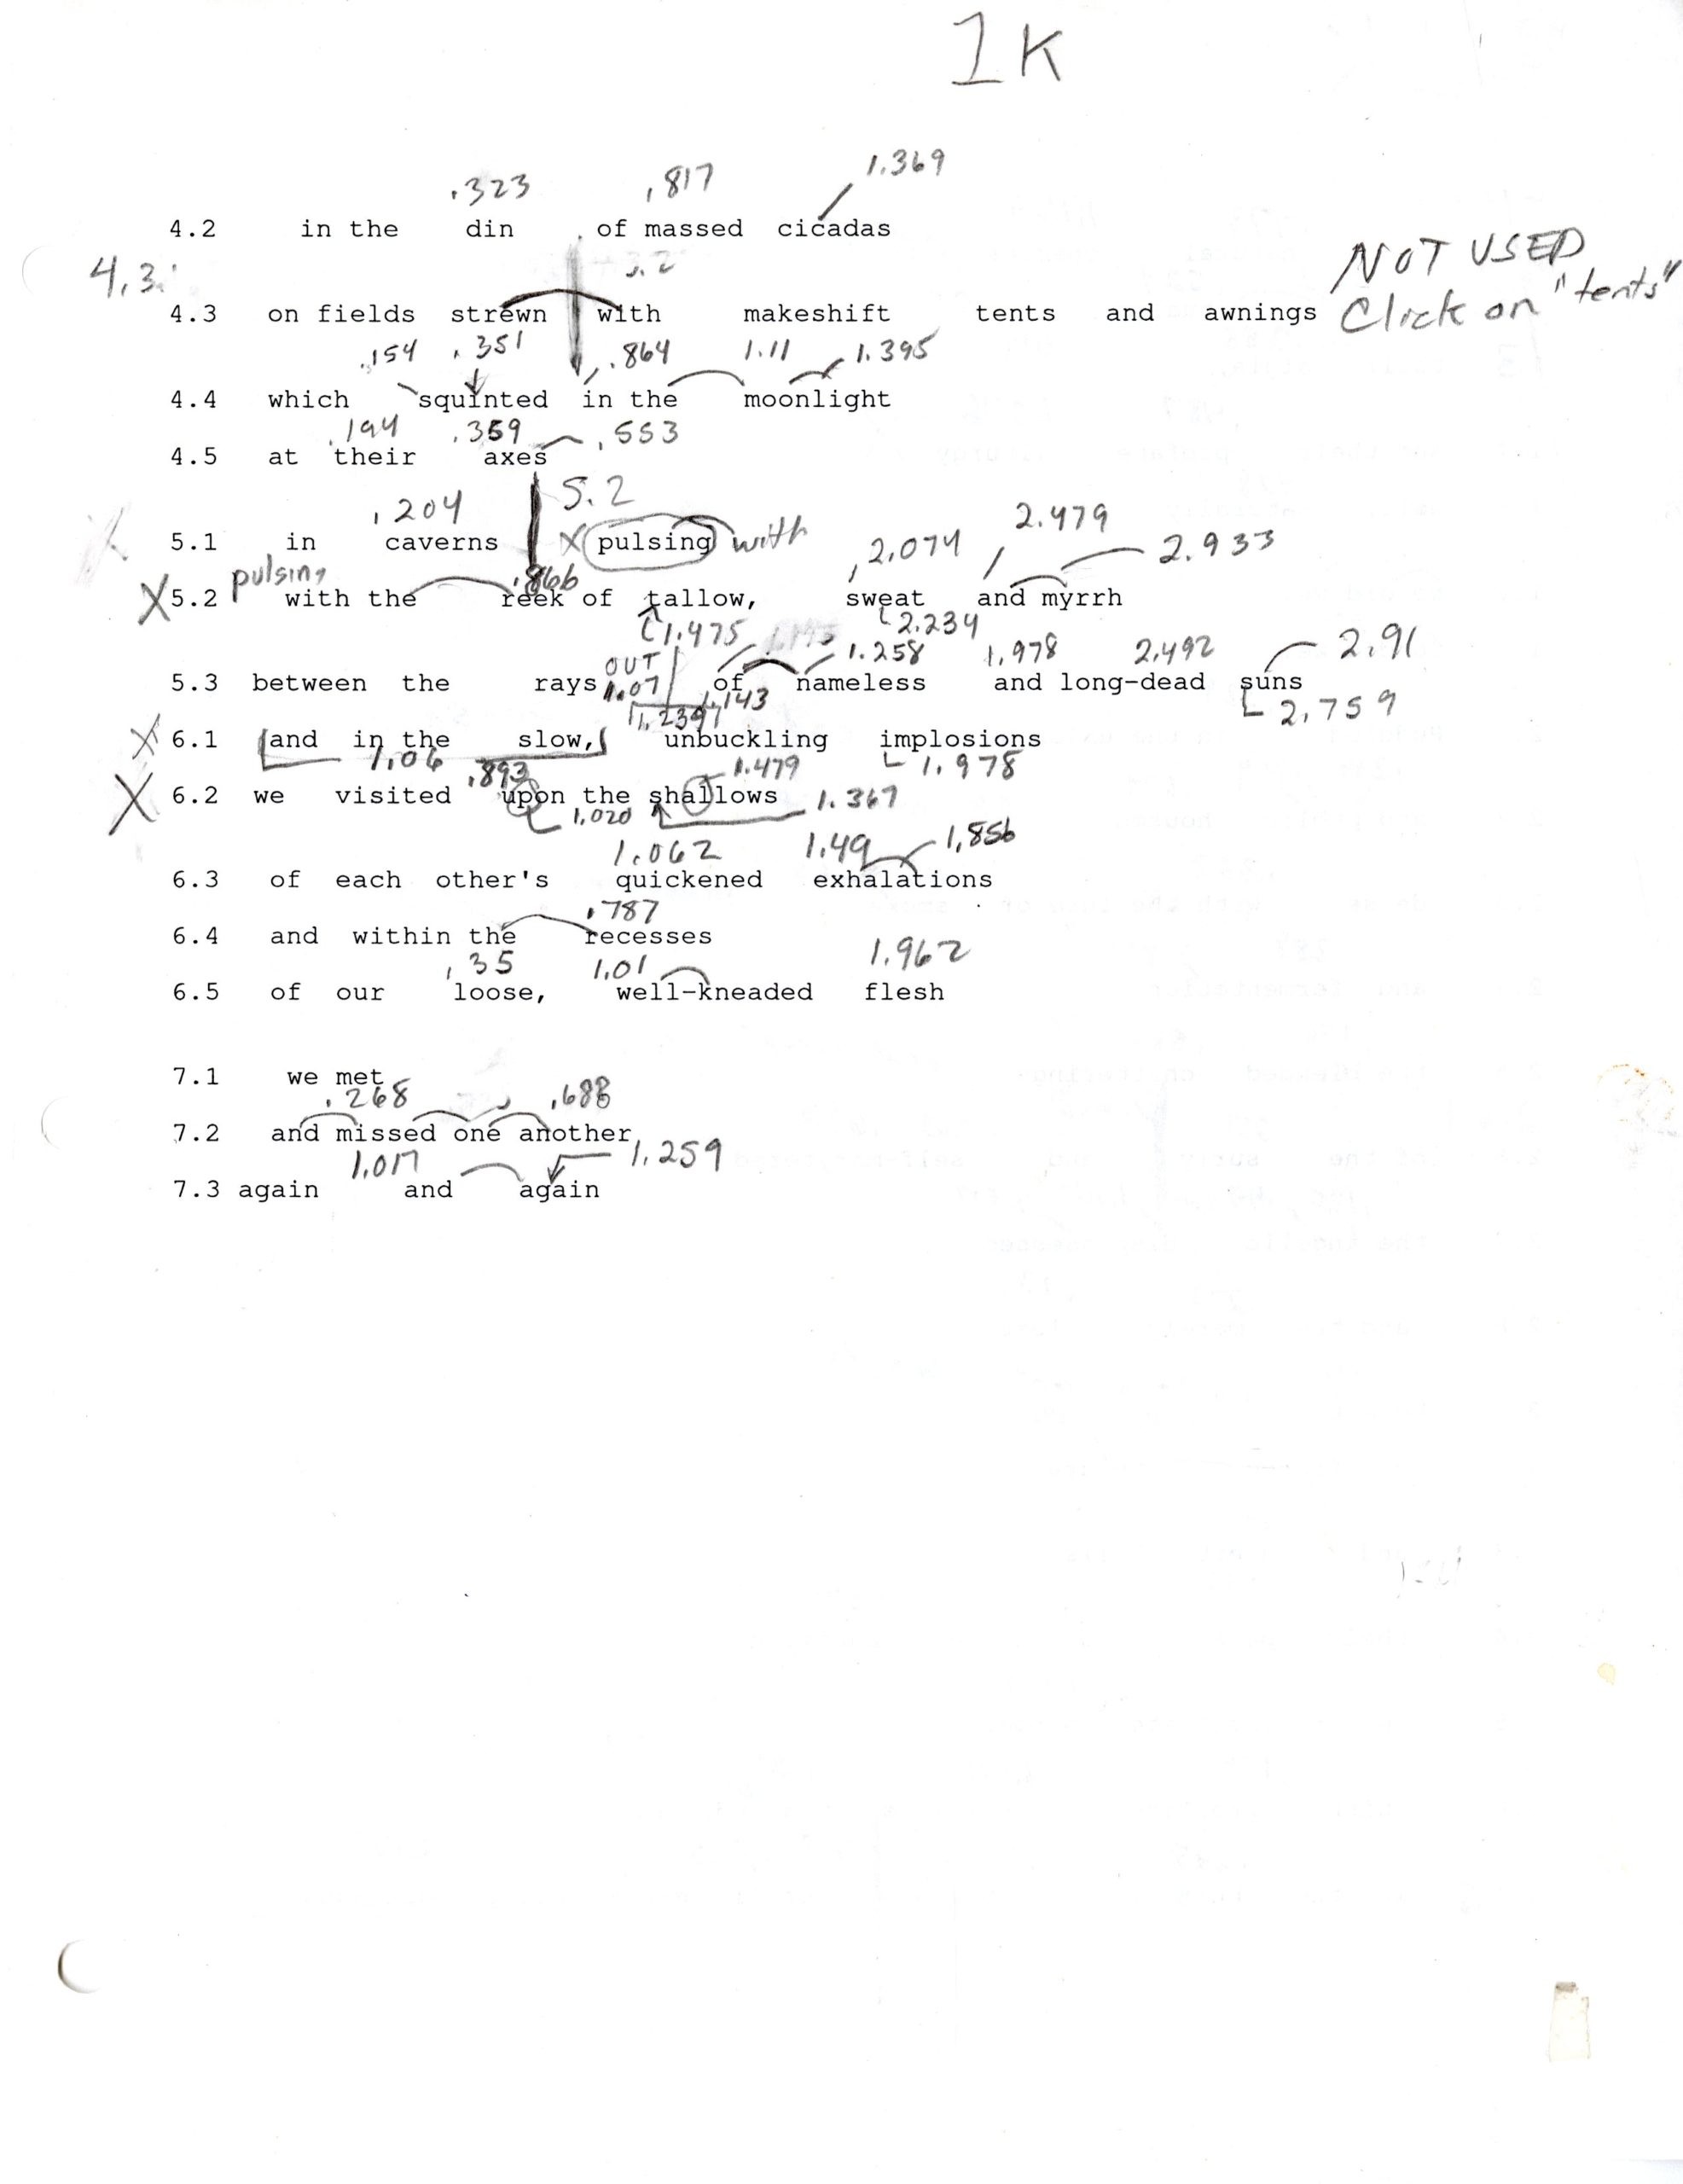 1K
.323 .817 1.369
4.2 in the din of massed cicadas
4.3 5.2 NOT USED
4.3 on fields strewn with makeshift tents and awnings Click on "tents"
.154 .351 .864 1.11 1.395
4.4 which squinted in the moonlight
.194 .359 .553
4.5 at their axes
.204 5.2 2.479
5.1 in caverns X pulsing with 2.074 2.933
pulsing .866
X 5.2 with the reek of tallow, sweat and myrrh
1.475 2.234
OUT 1.258 1.978 2.492 2.91
5.3 between the rays 1.07 of nameless and long-dead suns
1.239 1.143 2.759
X 6.1 and in the slow, unbuckling implosions
1.06 .893 1.479 1.978
X 6.2 we visited upon the shallows 1.367
1.020
1.062 1.49 1.856
6.3 of each other's quickened exhalations
.787
6.4 and within the recesses
.35 1.01 1.962
6.5 of our loose, well-kneaded flesh
7.1 we met
.268 .688
7.2 and missed one another
1.017 1.259
7.3 again and again